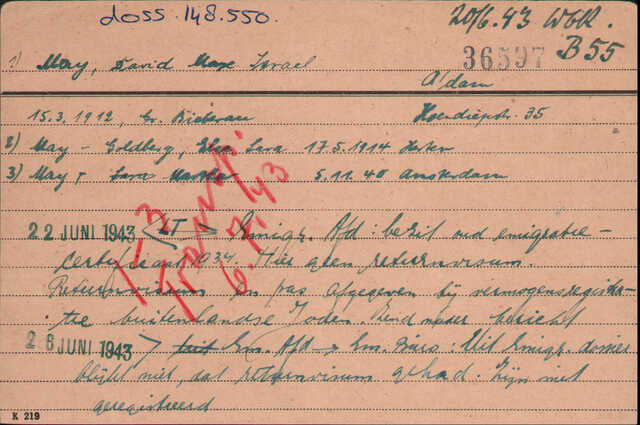 doss. 148.550.
20/6.43 WBK.
36597 B55
1) May, David Max Israel
A/dam
15.3.1912, Gr. Bieberau Koendiepstr. 35
2) May - Goldberg, Else Sara 17.5.1914 Herten
3) May, Sara 5.11.40 Amsterdam
1-3
Transp.
6.7.'43
22 JUNI 1943 <LT> Emigr. Afd: bezit oud emigratie-
certificaat 1034. Hier geen retourvisum.
Retourvisum en pas afgegeven bij vermogensregistra-
tie buitenlandse Joden. bericht
28 JUNI 1943 > Em. Afd → Em. Buro: Uit Emigr. dossier
blijkt niet, dat retourvisum gehad. Zijn niet
geregistreerd
K 219